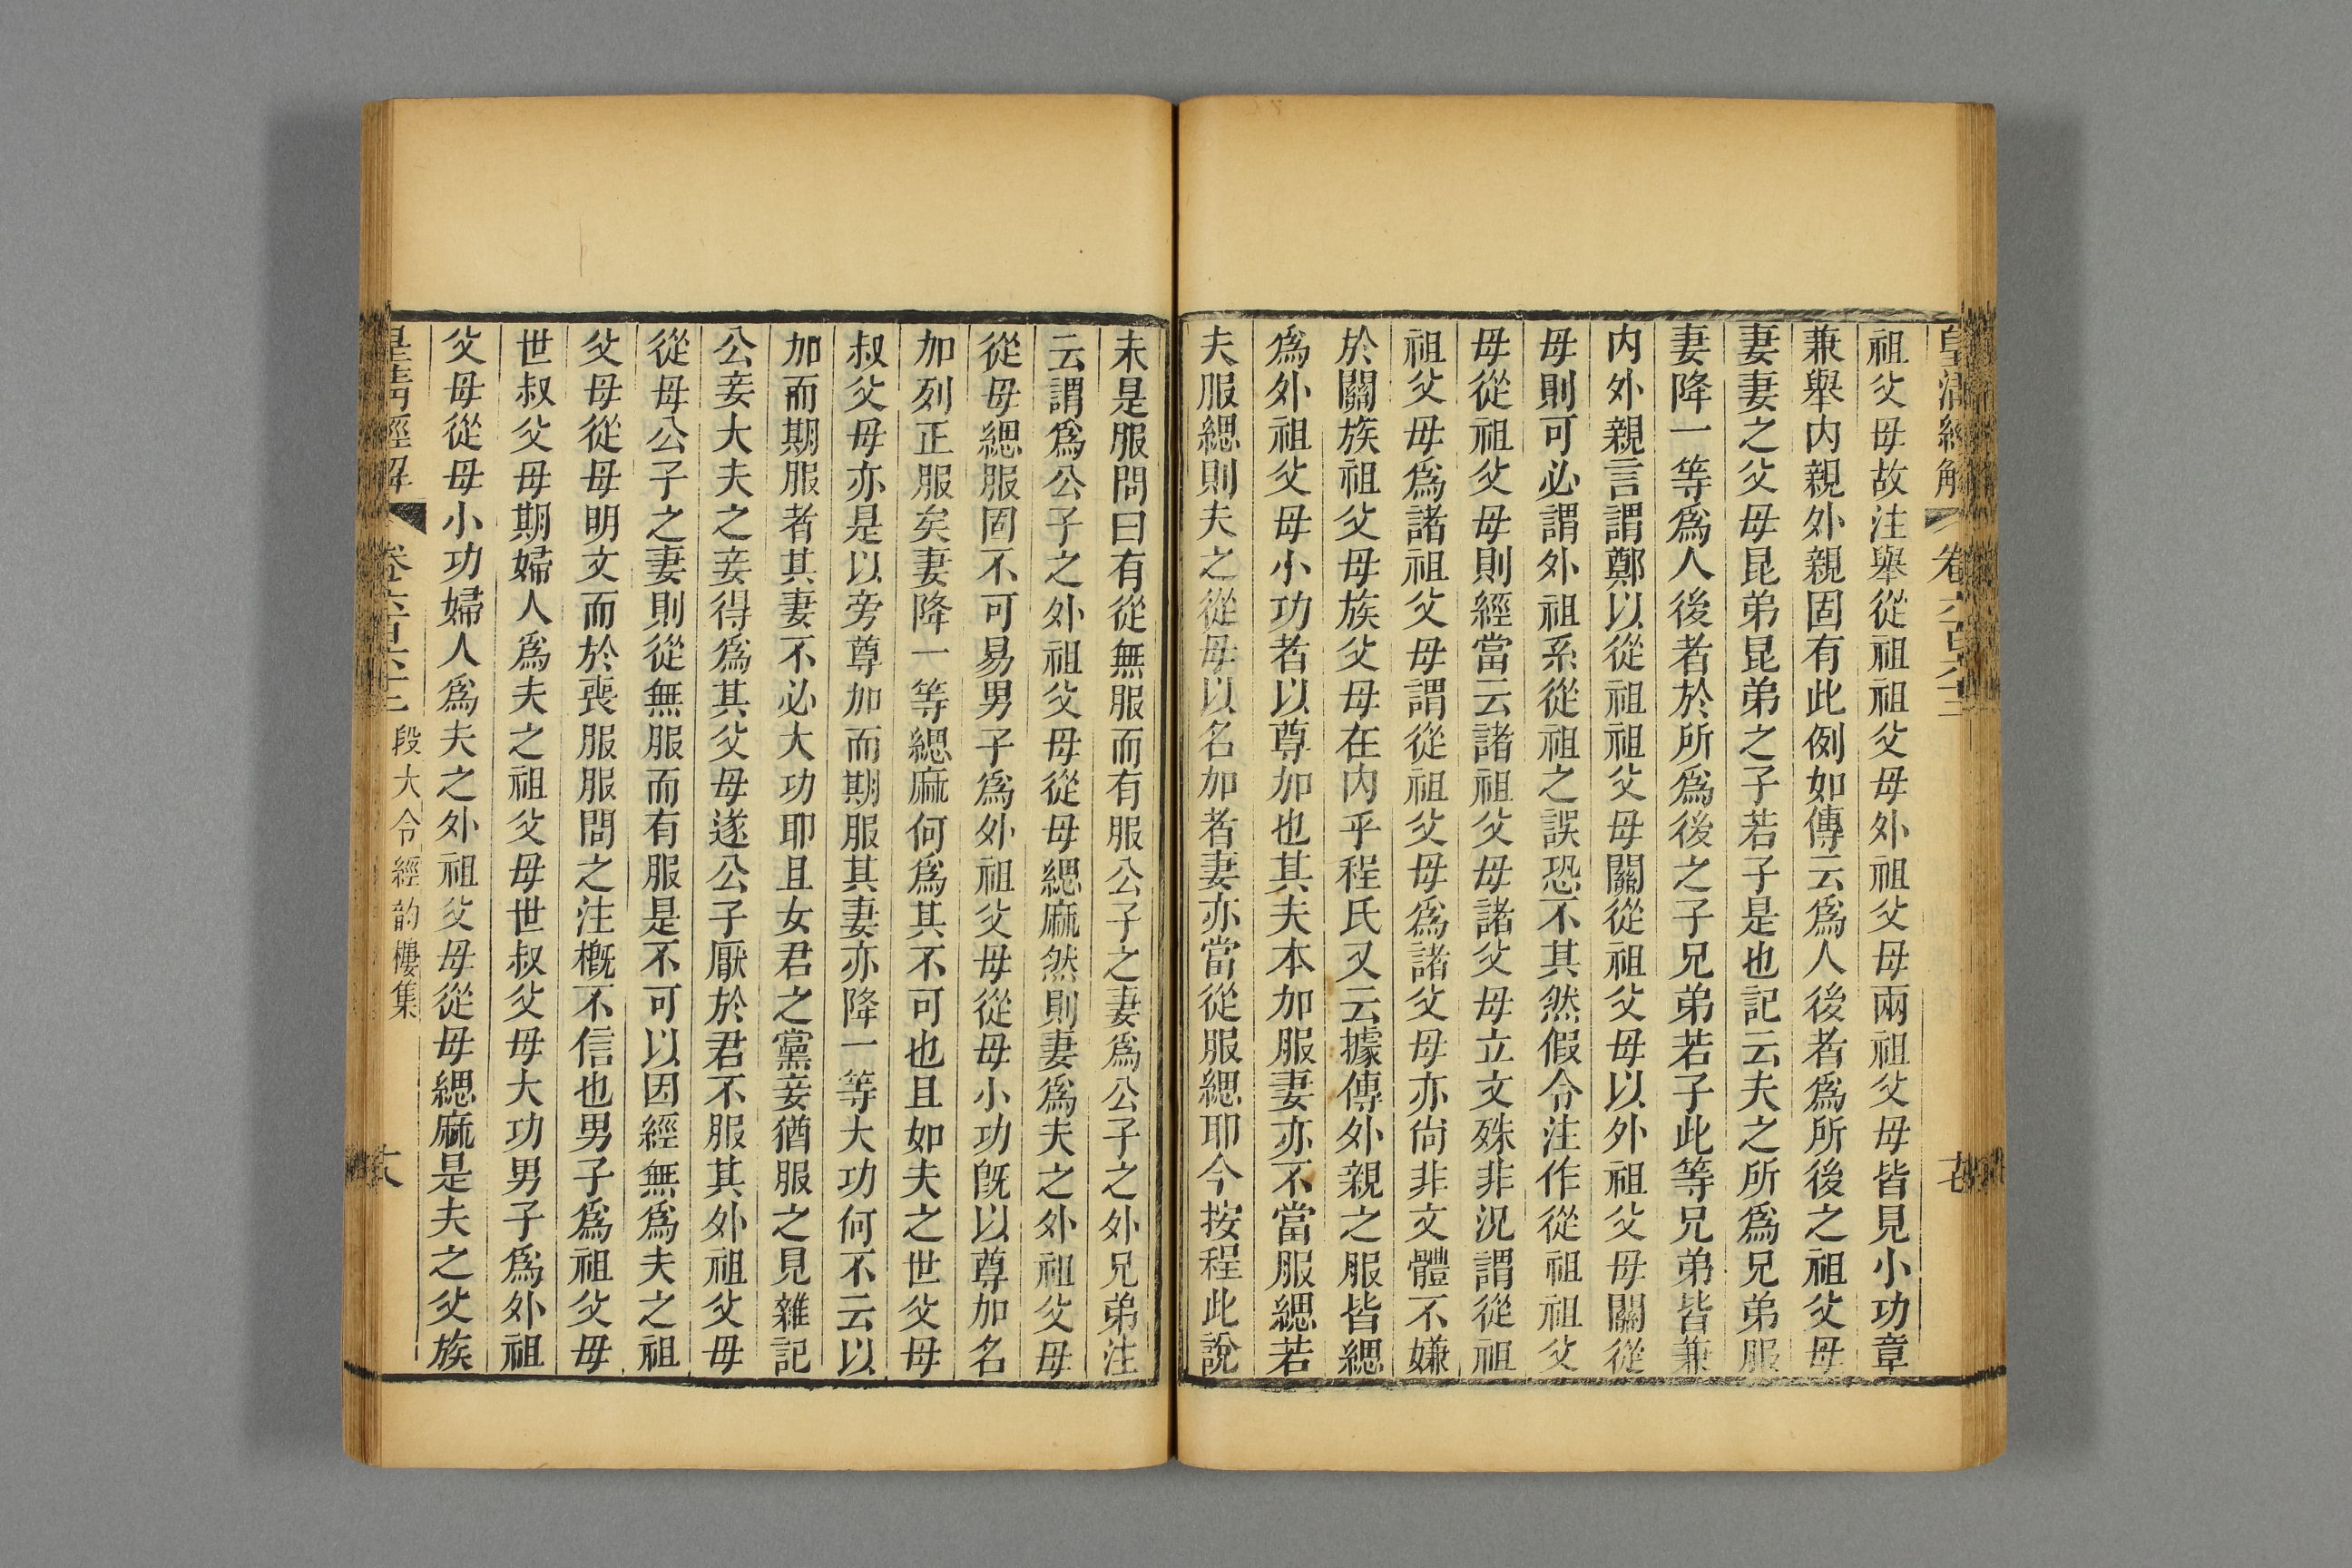 皇清經解 卷六百六十三 十七
祖父母故注舉從祖祖父母外祖父母兩祖父母皆見小功章
兼舉内親外親固有此例如傳云爲人後者爲所後之祖父母
妻妻之父母昆弟昆弟之子若子是也記云夫之所爲兄弟服
妻降一等爲人後者於所爲後之子兄弟若子此等兄弟皆兼
内外親言謂鄭以從祖祖父母關從祖父母以外祖父母關從
母則可必謂外祖系從祖之誤恐不其然假令注作從祖祖父
母從祖父母則經當云諸祖父母諸父母立文殊非況謂從祖
祖父母爲諸祖父母謂從祖父母爲諸父母亦尙非文體不嫌
於關族祖父母族父母在内乎程氏又云據傳外親之服皆緦
爲外祖父母小功者以尊加也其夫本加服妻亦不當服緦若
夫服緦則夫之從母以名加者妻亦當從服緦耶今按程此說
未是服問曰有從無服而有服公子之妻爲公子之外兄弟注
云謂爲公子之外祖父母從母緦麻然則妻爲夫之外祖父母
從母緦服固不可易男子爲外祖父母從母小功旣以尊加名
加列正服矣妻降一等緦麻何爲其不可也且如夫之世父母
叔父母亦是以旁尊加而期服其妻亦降一等大功何不云以
加而期服者其妻不必大功耶且女君之黨妾猶服之見雜記
公妾大夫之妾得爲其父母遂公子厭於君不服其外祖父母
從母公子之妻則從無服而有服是不可以因經無爲夫之祖
父母從母明文而於喪服服問之注槪不信也男子爲祖父母
世叔父母期婦人爲夫之祖父母世叔父母大功男子爲外祖
父母從母小功婦人爲夫之外祖父母從母緦麻是夫之父族
皇清經解 卷六百六十三 段大令經韵樓集 十八